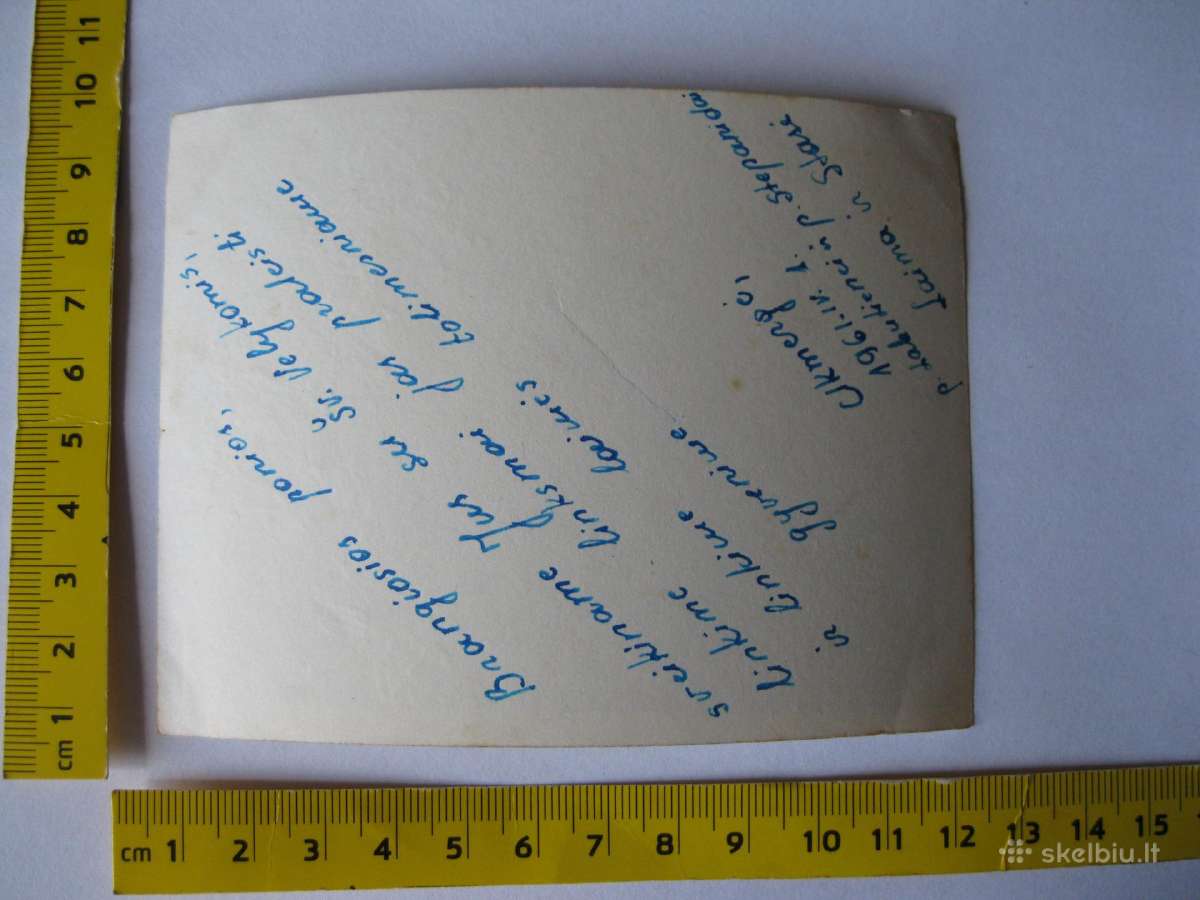 Brangiosios ponios,
sveikiname Jus su Šv. Velykomis,
linkime linksmai jas praleisti
ir linkime laimės tolimesniame
gyvenime
Ukmergė,
1961.IV.1.
p. Stepanidai
Laima ir Stasė
cm 1 2 3 4 5 6 7 8 9 10 11
cm 1 2 3 4 5 6 7 8 9 10 11 12 13 14 15
skelbiu.lt